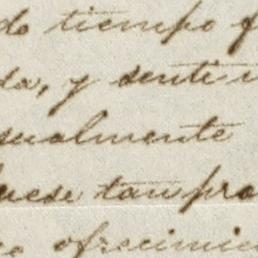 do tiempo f
da, y senti
sualmente
huese tan pro
ofrecimie